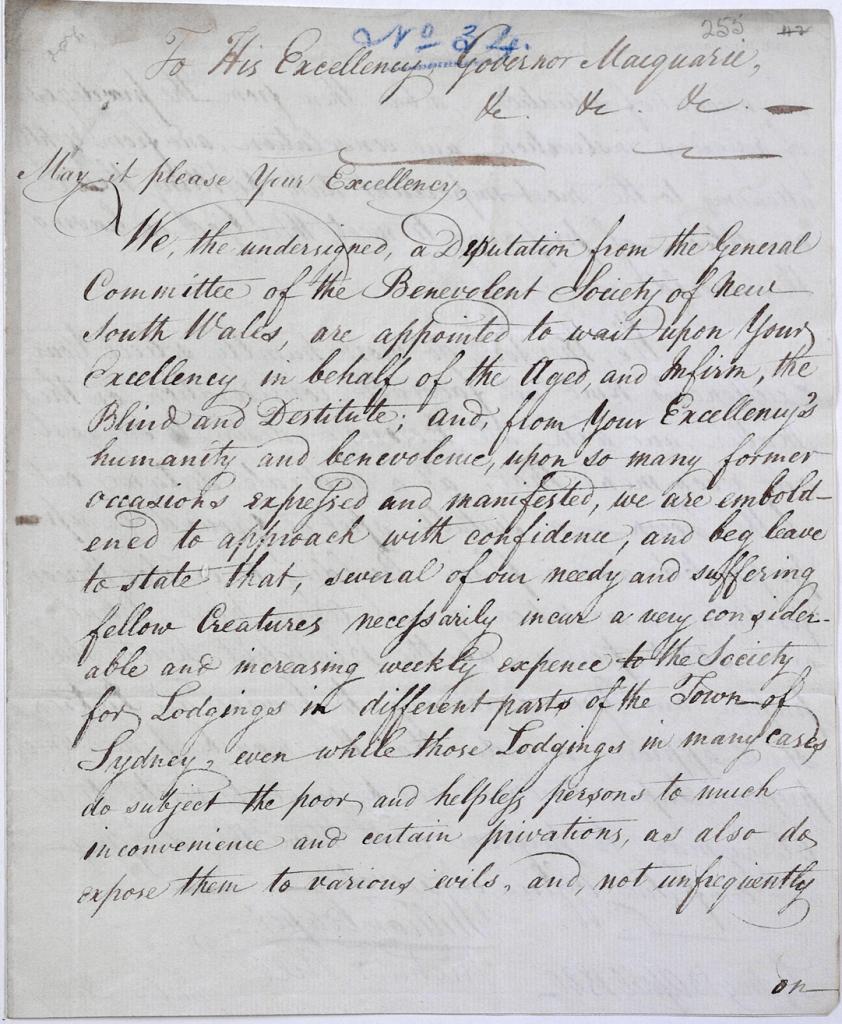 No 34.
255
To His Excellency Governor Macquarie,
&c. &c. &c.
May it please Your Excellency,
We, the undersigned, a Deputation from the General
Committee of the Benevolent Society of New
South Wales, are appointed to wait upon Your
Excellency in behalf of the Aged, and Infirm, the
Blind and Destitute; and, from Your Excellency's
humanity and benevolence, upon so many former
occasions expressed and manifested, we are embold-
ened to approach with confidence, and beg leave
to state that, several of our needy and suffering
fellow Creatures necessarily incur a very consider-
able and increasing weekly expence to the Society
for Lodgings in different parts of the Town of
Sydney, even while those Lodgings in many cases
do subject the poor and helpless persons to much
inconvenience and certain privations, as also do
expose them to various evils, and, not unfrequently
on